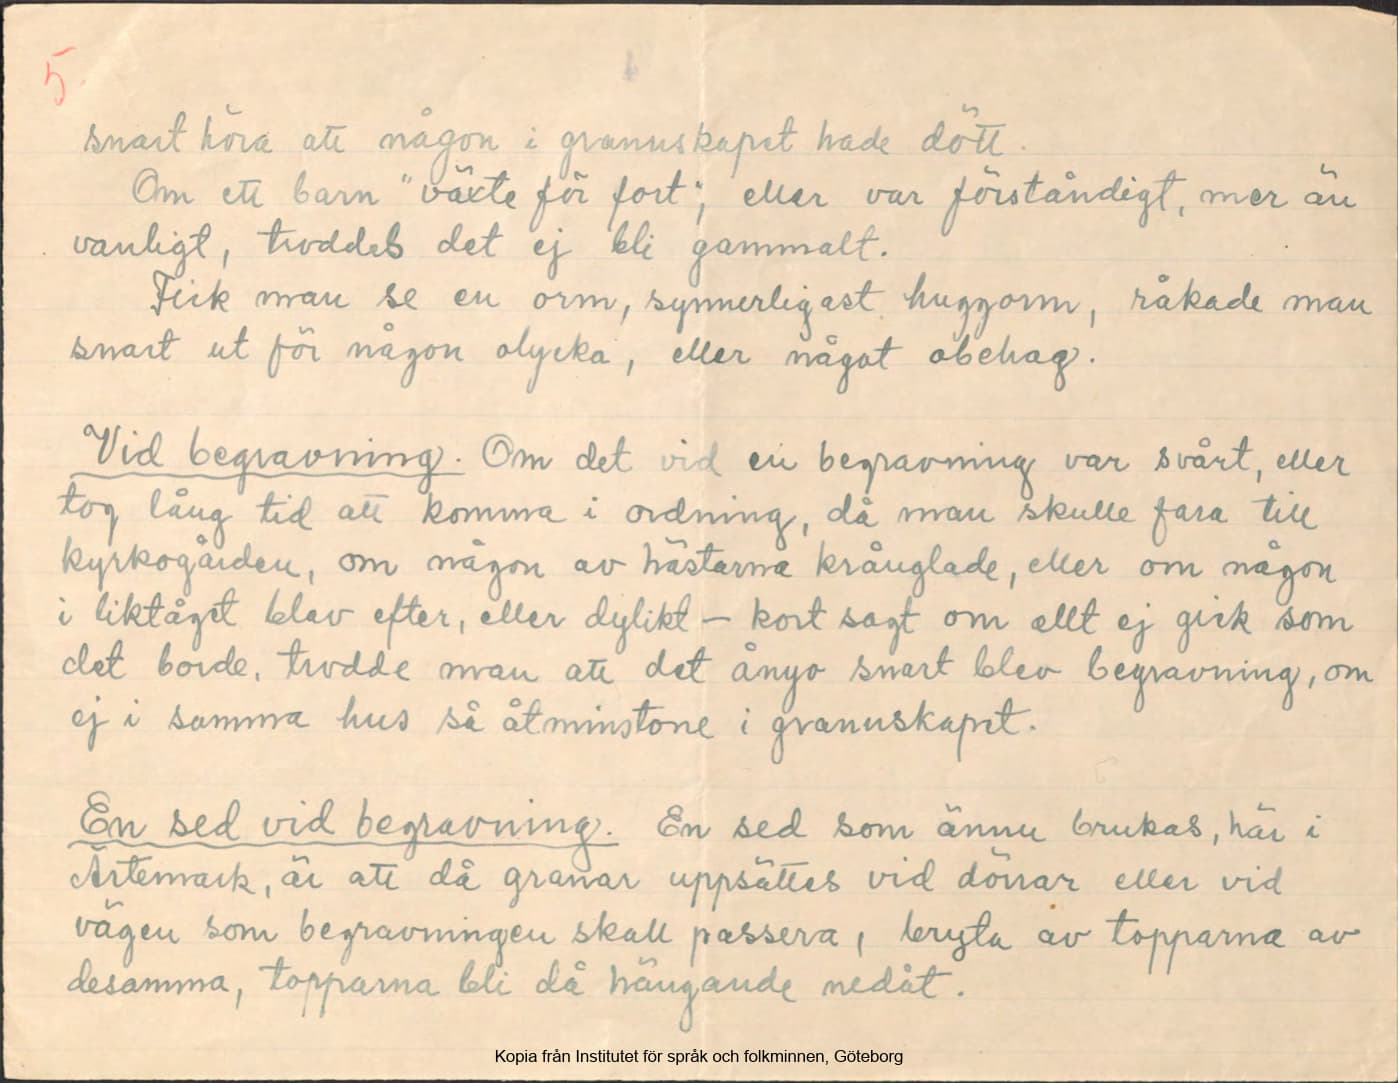 5
snart höra att någon i grannskapet hade dött.
Om ett barn "växte för fort", eller var förståndigt, mer än
vanligt, troddes det ej bli gammalt.
Fick man se en orm, synnerligast huggorm, råkade man
snart ut för någon olycka, eller något obehag.
Vid begravning. Om det vid en begravning var svårt, eller
tog lång tid att komma i ordning, då man skulle fara till
kyrkogården, om någon av hästarna krånglade, eller om någon
i liktåget blev efter, eller dylikt – kort sagt om allt ej gick som
det borde, trodde man att det ånyo snart blev begravning, om
ej i samma hus så åtminstone i grannskapet.
En sed vid begravning. En sed som ännu brukas, här i
Ärtemark, är att då granar uppsättes vid dörrar eller vid
vägen som begravningen skall passera, bryta av topparna av
desamma, topparna bli då hängande nedåt.
Kopia från Institutet för språk och folkminnen, Göteborg